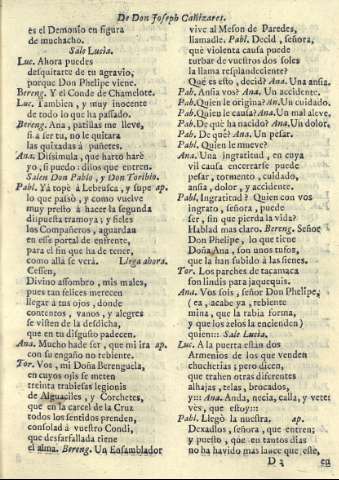 De Don Joseph Cañizares.
es el Demonio en figura
de muchacho.
Sale Lucia.
Luc. Ahora puedes
desquitarte de tu agravio,
porque Don Phelipe viene.
Bereng. Y el Conde de Chamelote.
Luc. Tambien, y muy inocente
de todo lo que ha passado.
Bereng. Ana, patillas me lleve,
si à ser tu, no le quitara
las quixadas à puñetes.
Ana. Dissimula, que harto harè
yo, si puedo: dilos que entren.
Salen Don Pablo, y Don Toribio.
Pabl. Yà topè à Lebeusca, y supe ap.
lo que passò, y como vuelve
muy presto à hacer la segunda
dispuesta tramoya; y fieles
los Compañeros, aguardan
en esse portal de enfrente,
para el fin que ha de tener,
como allà se verà. Llega ahora.
Cessen,
Divino assombro, mis males,
pues tan felices merecen
llegar à tus ojo, donde
contentos, vanos, y alegres
se visten de la desdicha,
que en tu disgusto padecen.
Ana. Mucho hade ser, que mi ira ap.
con su engaño no rebiente.
Tor. Vos, mi Doña Berenguela,
en cuyos ojis se meten
treinta trabiesas legionis
de Alguaciles, y Corchetes,
que en la carcel de la Cruz
todos los sentidos prenden,
consolad à vuestro Condi,
que desfarfallada tiene
el alma. Bereng. Un Ensamblador
vive al Meson de Paredes,
llamadle. Pabl. Decid, señora,
què violenta causa puede
turbar de vuestros dos soles
la llama resplandeciente?
Què es esto, decid? Ana. Una ansia.
Pab. Ansia vos? Ana. Un accidente.
Pab. Quien le origina? An. Un cuidado.
Pab. Quien le causa? Ana. Un mal aleve.
Pab. De què ha nacido? Ana. Un dolor.
Pab. De què? Ana. Un pesar.
Pabl. Quien le mueve?
Ana. Una ingratitud, en cuya
vil causa encerrarse puede
pesar, tormento, cuidado,
ansia, dolor, y accidente.
Pabl. Ingratitud? Quien con vos
ingrato, señora, puede
ser, sin que pierda la vida?
Hablad mas claro. Bereng. Señor
Don Phelipe, lo que tiene
Doña Ana, son unos tufos,
que la han subido à las sienes.
Tor. Los parches de tacamaca
son lindis para jaquequis.
Ana. Vos sois, señor Don Phelipe,
(ea, acabe ya, rebiente
mina, que la rabia forma,
y que los zelos la encienden)
quien::: Sale Lucia.
Luc. A la puerta estàn dos
Armenios de los que venden
chucherias; pero dicen,
que trahen otras diferentes
alhajas, telas, brocados,
y::: Ana. Anda, necia, calla, y vete:
vès, que estoy:::
Pabl. Llegò la nuestra. ap.
Dexadlos, señora, que entren;
y puesto, que en tantos dias
no ha havido mas lance que este,
D 2 en